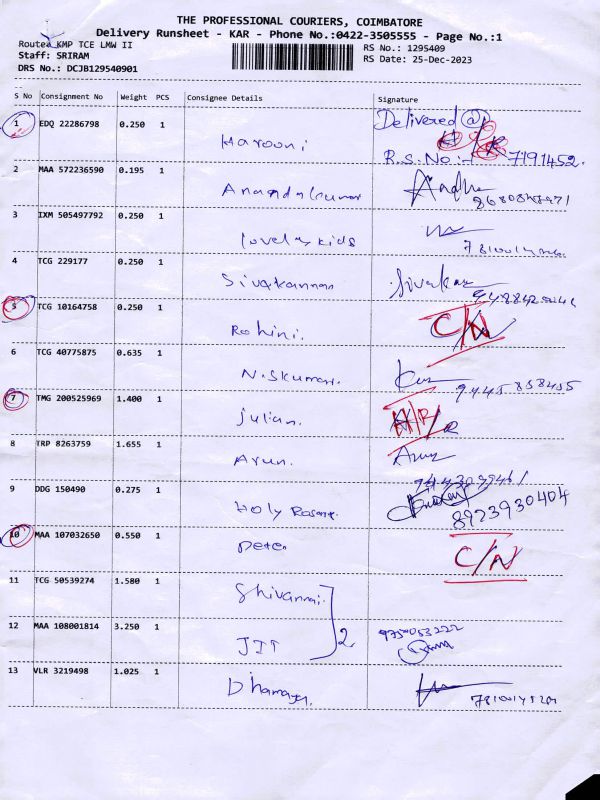 THE PROFESSIONAL COURIERS, COIMBATORE
Delivery Runsheet - KAR - Phone No.:0422-3505555 - Page No.:1
Route: KMP TCE LMW II
RS No.: 1295409
Staff: SRIRAM
RS Date: 25-Dec-2023
DRS No.: DCJB129540901
S No Consignment No Weight PCS Consignee Details Signature
1 EDQ 22286798 0.250 1 Harouni Delivered @
R.S.No:- 7191452.
2 MAA 572236590 0.195 1 Anandakumar
3 IXM 505497792 0.250 1 lovely kids
4 TCG 229177 0.250 1 Sivakannan Sivakar
5 TCG 10164758 0.250 1 Rohini. C/N
6 TCG 40775875 0.635 1 N.Skumar.
7 TMG 200525969 1.400 1 Julian.
8 TRP 8263759 1.655 1 Arun. Arun
9 DDG 150490 0.275 1 Holy 8923930404
10 MAA 107032650 0.550 1 Peter C/N
11 TCG 50539274 1.580 1 Shivannai.
12 MAA 108001814 3.250 1 JIT 2. 9750053222
13 VLR 3219498 1.025 1